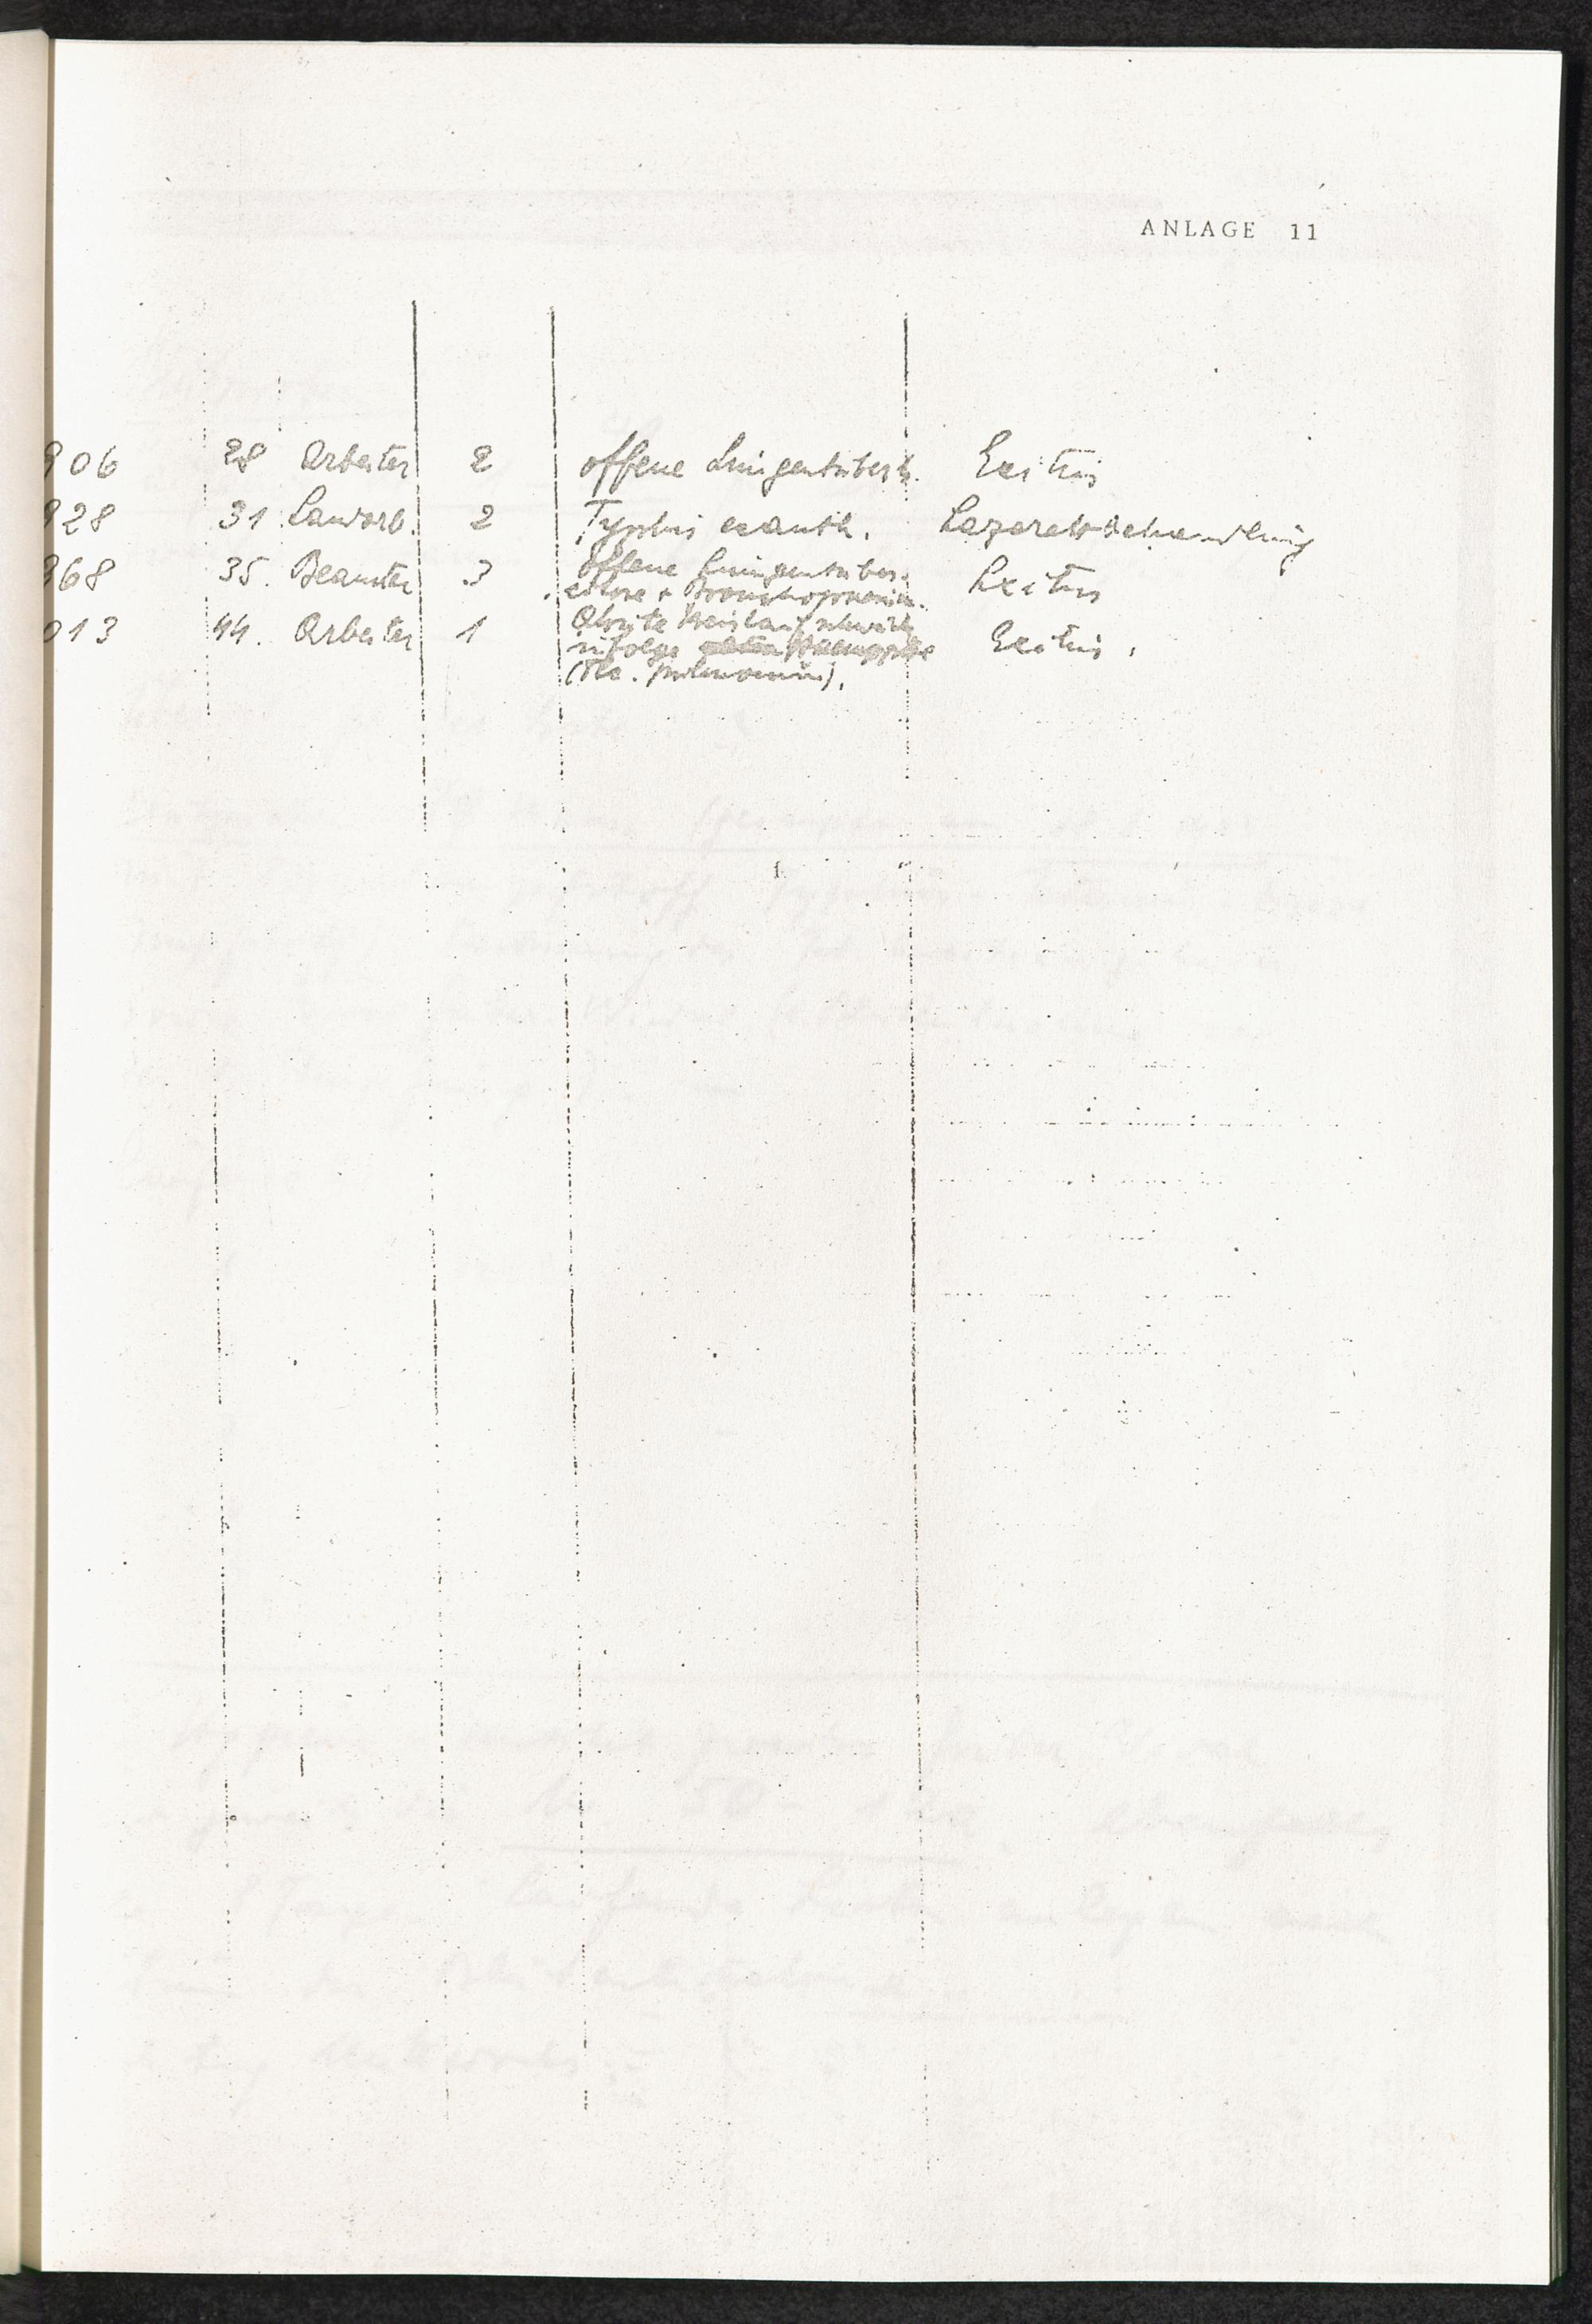 ANLAGE 11
906 28 Arbeiter 2 offene Lungentuberk. Exitus
928 31 Landarb. 2 Typhus exanth. Lazarettbehandlung
968 35. Beamter 3 offene Lungentuber-
culose + Bronchopneum. Exitus
013 44. Arbeiter 1 Akute Kreislaufschwäche
infolge Exitus.
(Tbc. pulmonum).